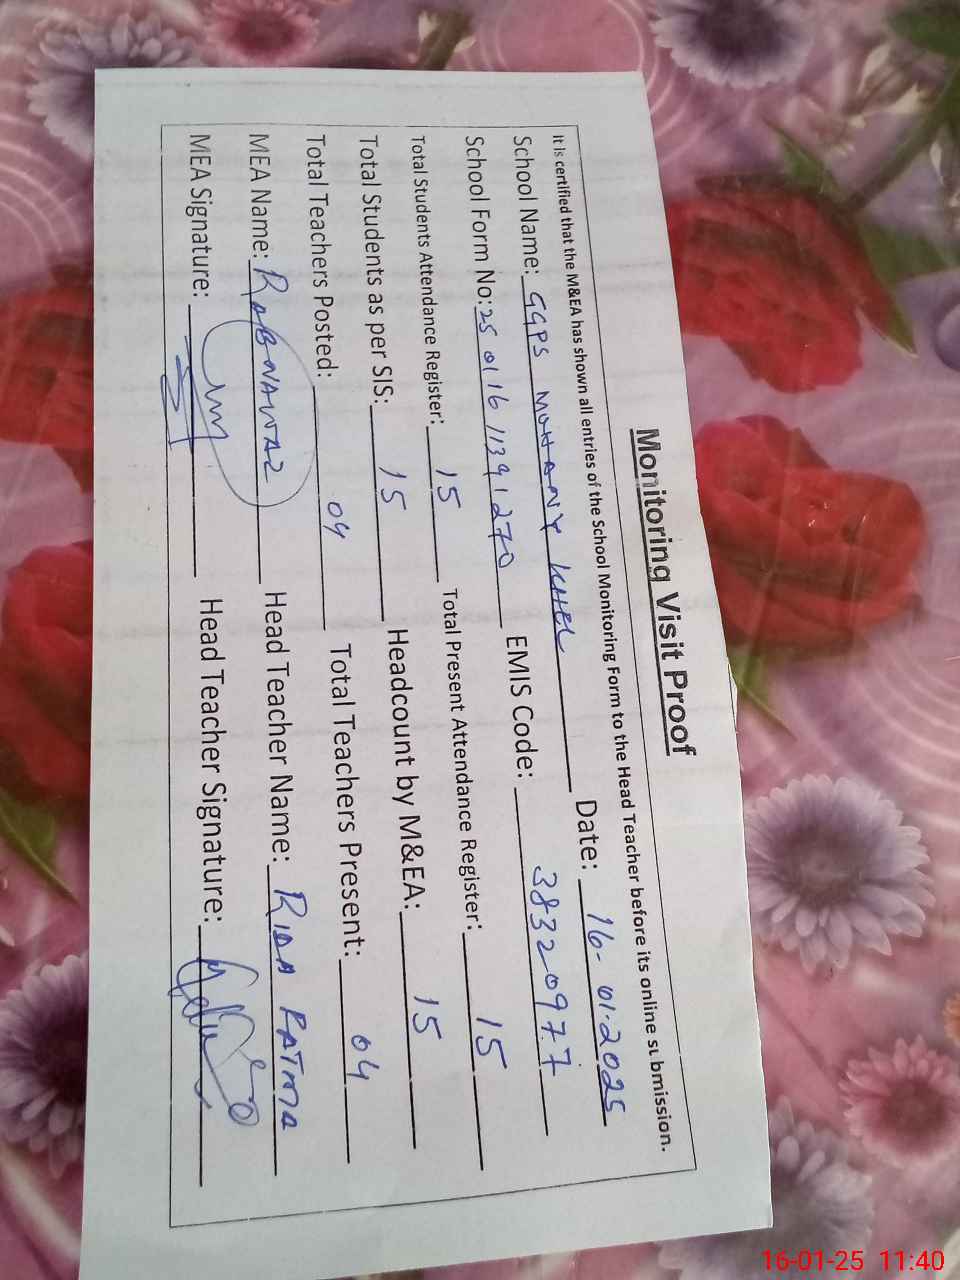 Monitoring Visit Proof
It is certified that the M&EA has shown all entries of the School Monitoring Form to the Head Teacher before its online submission.
School Name: GGPS MOHANY KHEL Date: 16-01-2025
School Form No: 25 01 16 11391270 EMIS Code: 38320977
Total Students Attendance Register: 15 Total Present Attendance Register: 15
Total Students as per SIS: 15 Headcount by M&EA: 15
Total Teachers Posted: 04 Total Teachers Present: 04
MEA Name: RAB NAWAZ Head Teacher Name: RIDA FATMA
MEA Signature: Head Teacher Signature:
16-01-25 11:40